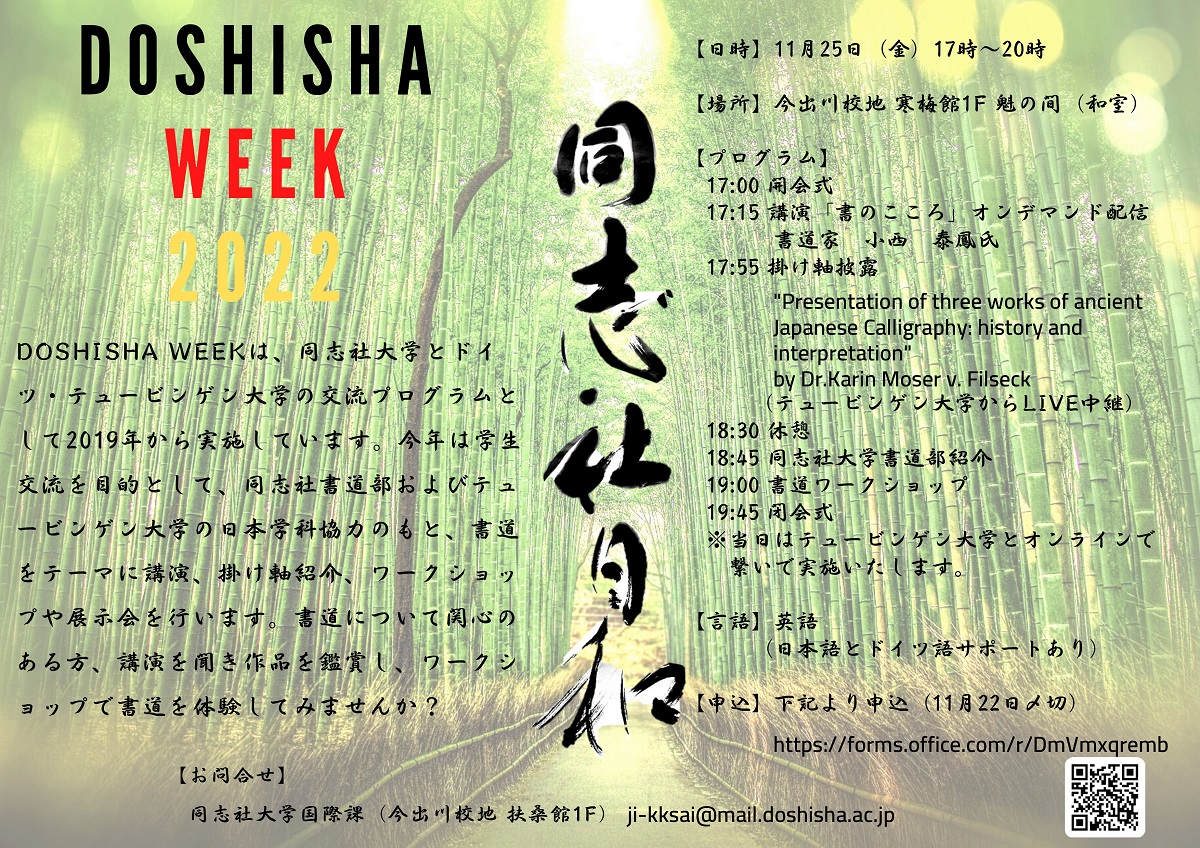 DOSHISHA
WEEK
2022
DOSHISHA WEEKは、同志社大学とドイ
ツ・テュービンゲン大学の交流プログラムと
して2019年から実施しています。今年は学生
交流を目的として、同志社書道部およびテュ
ービンゲン大学の日本学科協力のもと、書道
をテーマに講演、掛け軸紹介、ワークショッ
プや展示会を行います。書道について関心の
ある方、講演を聞き作品を鑑賞し、ワークシ
ョップで書道を体験してみませんか？
同志社日和
【日時】11月25日（金）17時～20時
【場所】今出川校地 寒梅館1F 魁の間（和室）
【プログラム】
17:00 開会式
17:15 講演「書のこころ」オンデマンド配信
書道家　小西　泰鳳氏
17:55 掛け軸披露
"Presentation of three works of ancient
Japanese Calligraphy: history and
interpretation"
by Dr.Karin Moser v. Filseck
（テュービンゲン大学からLIVE中継）
18:30 休憩
18:45 同志社大学書道部紹介
19:00 書道ワークショップ
19:45 閉会式
※当日はテュービンゲン大学とオンラインで
繋いで実施いたします。
【言語】英語
（日本語とドイツ語サポートあり）
【申込】下記より申込（11月22日〆切）
https://forms.office.com/r/DmVmxqremb
【お問合せ】
同志社大学国際課（今出川校地 扶桑館1F） ji-kksai@mail.doshisha.ac.jp